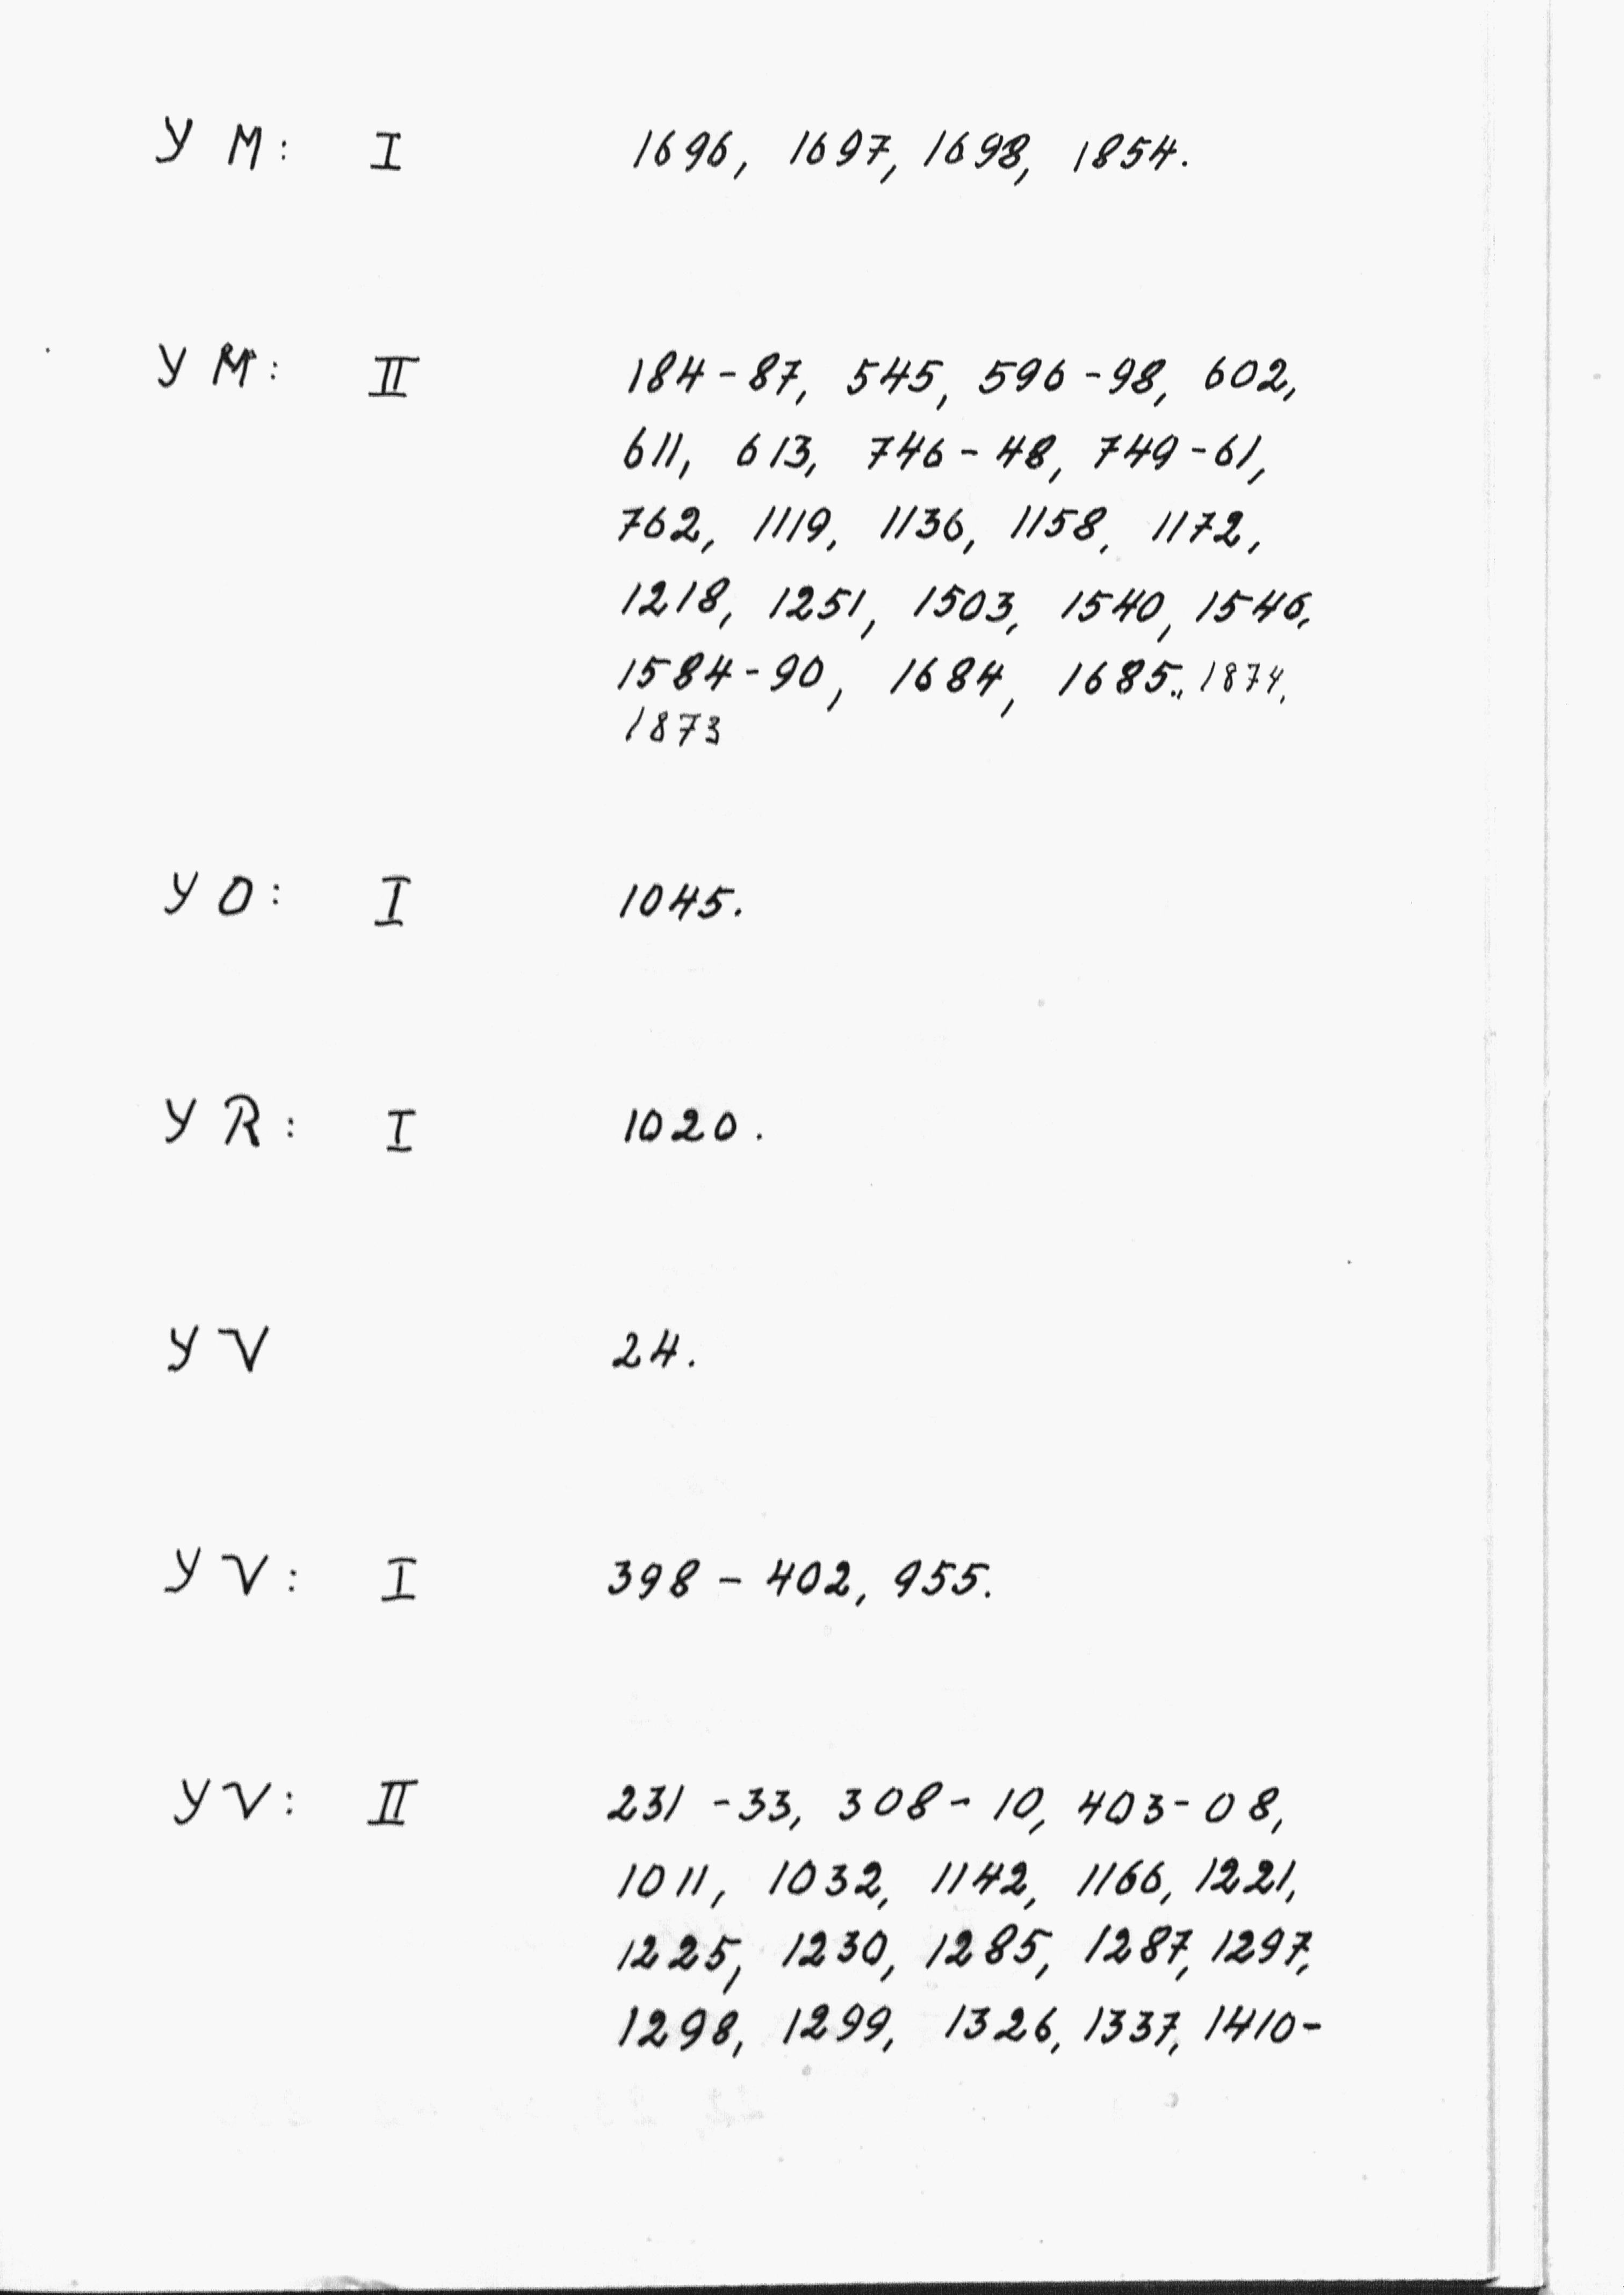 Y M: I 1696, 1697, 1698, 1854.
Y M: II 184-87, 545, 596-98, 602,
611, 613, 746-48, 749-61,
762, 1119, 1136, 1158, 1172,
1218, 1251, 1503, 1540, 1546,
1584-90, 1684, 1685., 1874,
1873
Y O: I 1045.
Y R: I 1020.
Y V 24.
Y V: I 398-402, 955.
Y V: II 231-33, 308-10, 403-08,
1011, 1032, 1142, 1166, 1221,
1225, 1230, 1285, 1287, 1297,
1298, 1299, 1326, 1337, 1410-